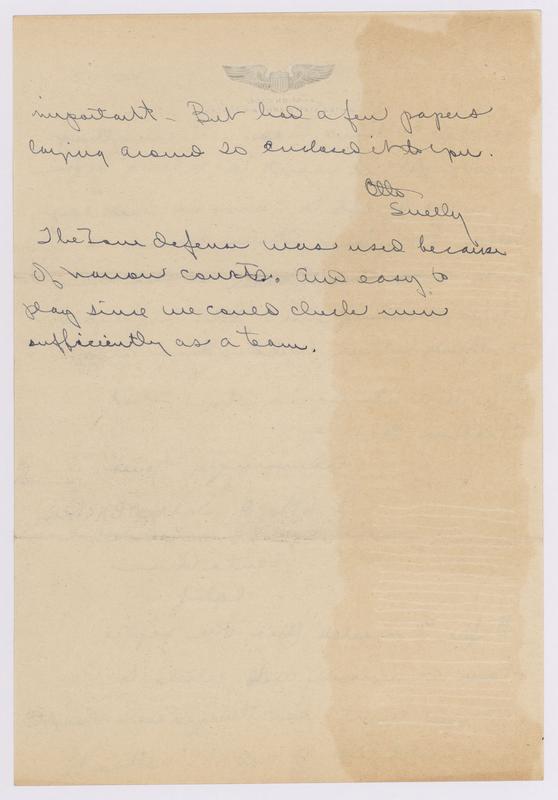 important - But had a few papers
laying around so enclosed it to you.
Otto
Snelly
The Zone defense was used because
of narrow courts. And easy to
play since we could check men
sufficiently as a team.